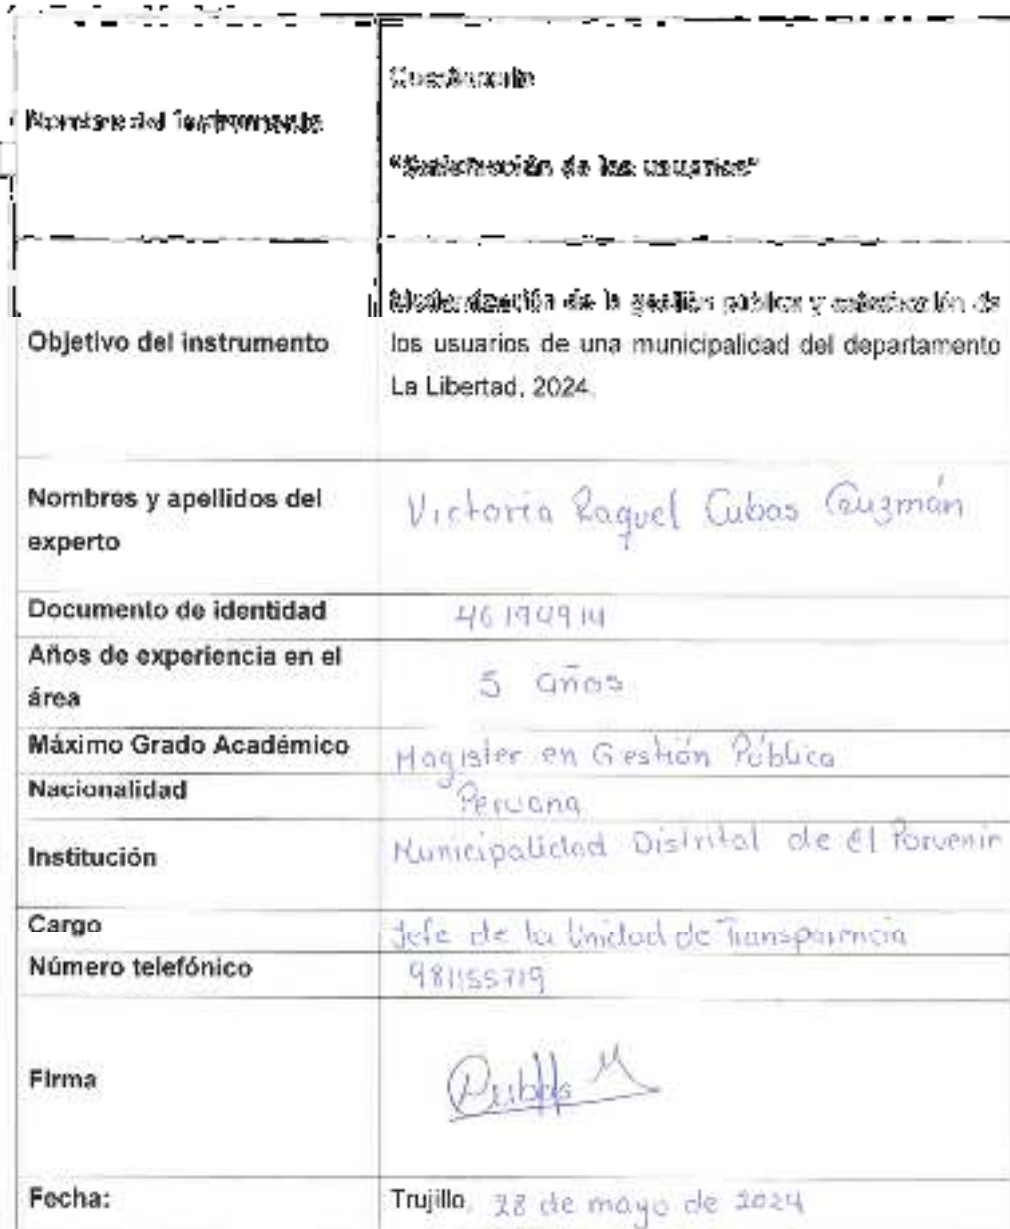 Nombre del Instrumento
Cuestionario
"Satisfacción de los usuarios"
Objetivo del instrumento
Modernización de la gestión pública y satisfacción de
los usuarios de una municipalidad del departamento
La Libertad, 2024.
Nombres y apellidos del
experto
Victoria Raquel Cubas Guzmán
Documento de identidad
Años de experiencia en el
área
5 años
Máximo Grado Académico
Magister en Gestión Pública
Nacionalidad
Peruana
Institución
Municipalidad Distrital de El Porvenir
Cargo
Jefe de la Unidad de Transparencia
Número telefónico
981155719
Firma
Fecha:
Trujillo, 28 de mayo de 2024